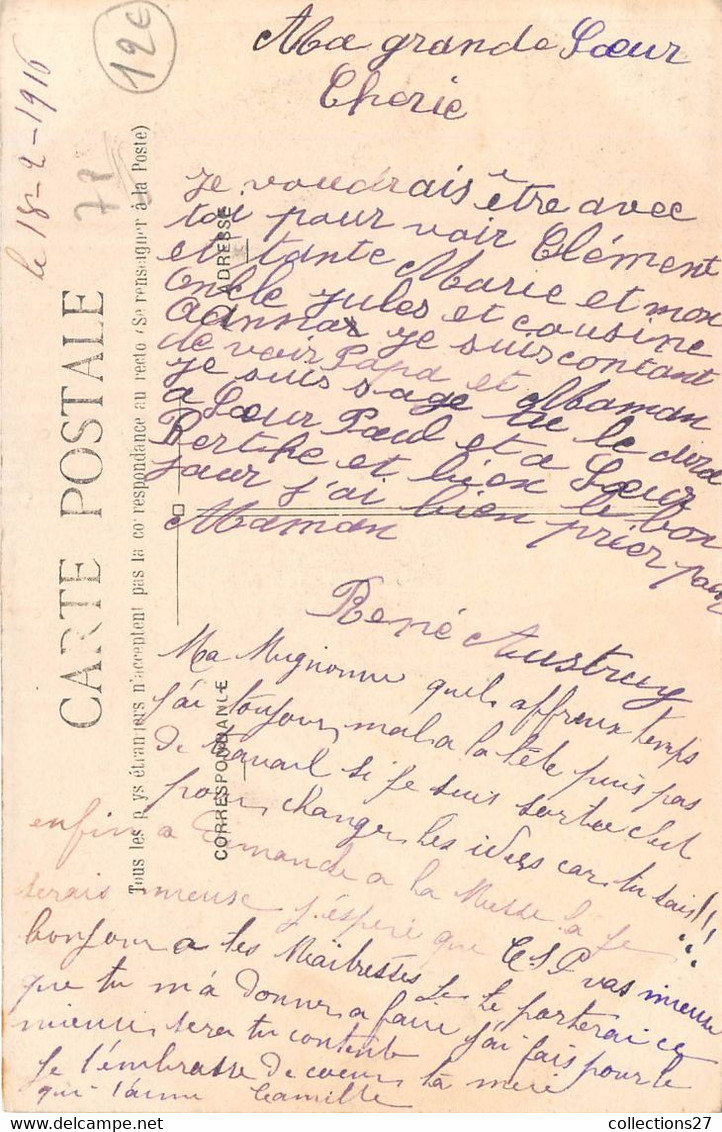 le 18-2-1916
12€
78
Ma grande Sœur
Cherie
je voudrais être avec
toi pour voir Clément
et tante Marie et mon
Oncle jules et cousine
je suis contant
de voir Papa et Maman
je suis sage tu le dira
a Sœur Paul et a Sœur
Berthe et bien le bon
jour j'ai bien prier pour
Maman
René Austruy
Ma Mignonne quels affreux temps
j'ai toujours mal a la tête puis pas
de travail si je suis sortie c'est
pour changer les idées car tu sais!!
enfin a Dimande a la Messe la je
serais mieuse j'éspère que vas mieux
bonjour a tes Maitresses je te porterai ce
que tu m'a donner a faire j'ai fais pour le
mieux, sera tu contente
Je t'embrasse de coeur ta mère
qui t'aime Camille
CARTE POSTALE
Tous les pays étrangers n'acceptent pas la correspondance au recto (Se renseigner à la Poste)
CORRESPONDANCE
ADRESSE
collections27